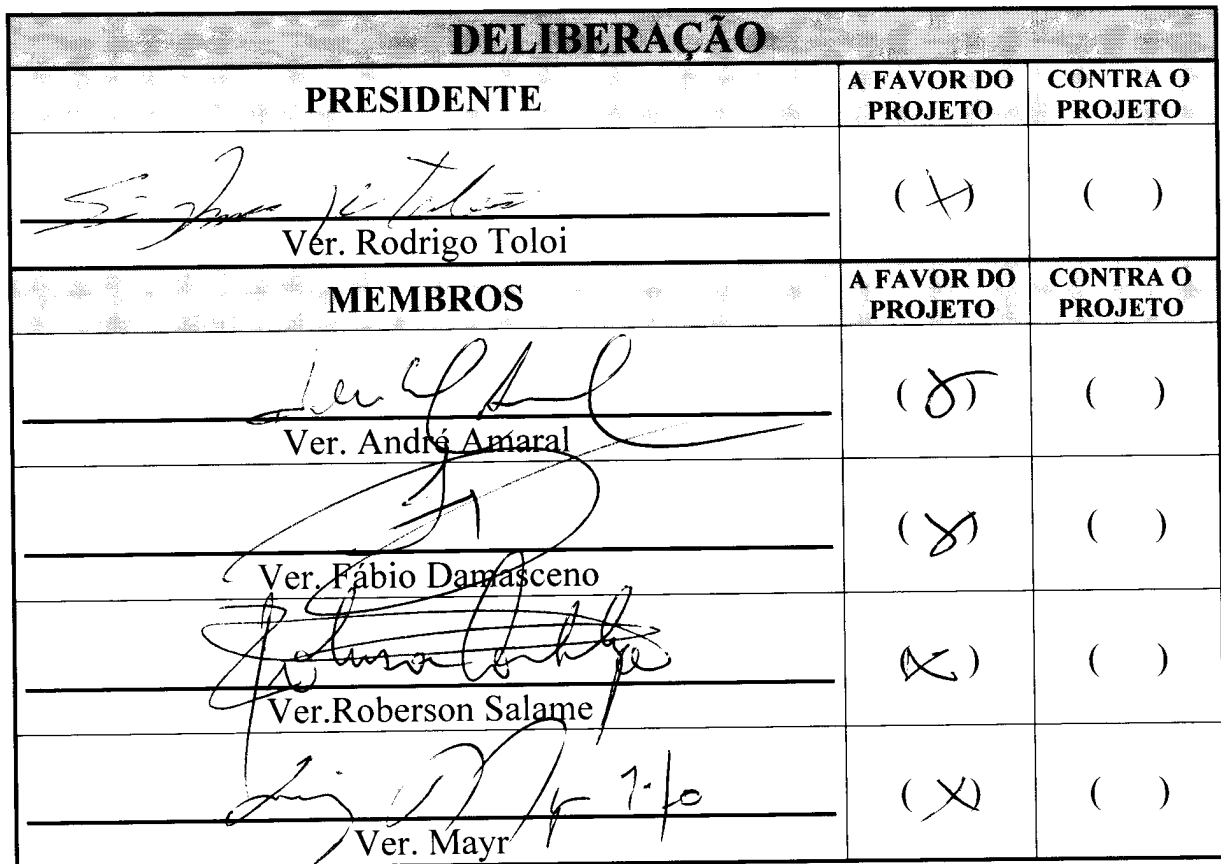 DELIBERAÇÃO
PRESIDENTE
A FAVOR DO PROJETO
CONTRA O PROJETO
Ver. Rodrigo Toloi
(X)
( )
MEMBROS
A FAVOR DO PROJETO
CONTRA O PROJETO
Ver. André Amaral
(X)
( )
Ver. Fábio Damasceno
(X)
( )
Ver.Roberson Salame
(X)
( )
Ver. Mayr
(X)
( )